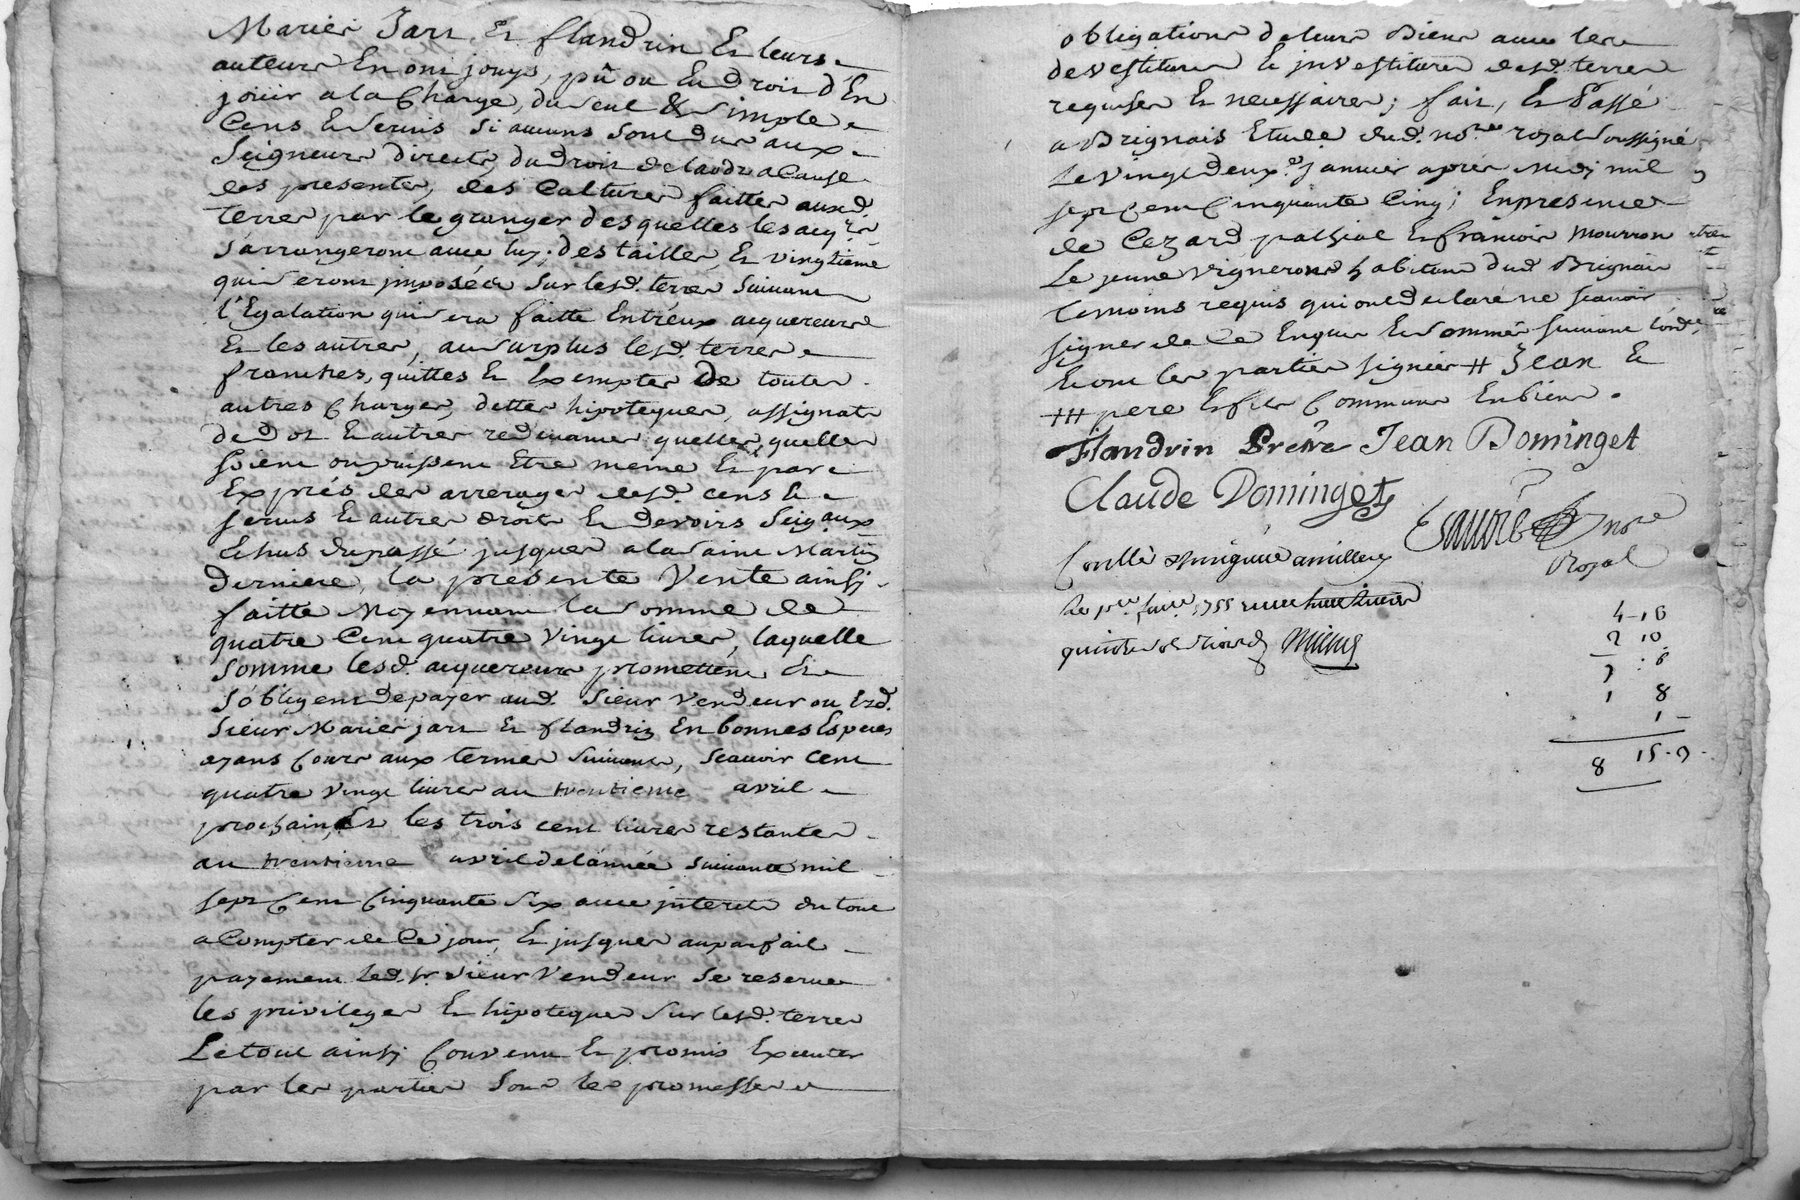 Mariés Jars, et flandrin et leurs
auteurs En ont jouys, pû ou Eu droit d'En
joüir a la Charge, du seul & simple
Cens et servis si aucuns sont dus aux
Seigneurs directs, du droit de laods a Cause
des presentes, des Cultures faittes auxd.
terres par le granger desquelles les acqrs
s'arrangeront avec luy, des tailles, et vingtieme
qui seront jmposées sur lesd. terres suivant
l'Egalation qui sera faitte Entr'eux acquereurs
et les autres, au surplus lesd. terres
franches, quittes et Exemptes de toutes
autres Charges, dettes hipoteques, assignats
de dot et autres redevances quelles, quelles
soient ou puissent Etre meme et par
Exprés des arrerages desd. cens et
servis et autres droits et devoirs Seigaux
Echus du passé jusques a la saint Martin
derniere, la presente Vente ainsj
faitte Moyennant la somme de
quatre Cent quatre vingt livres, laquelle
somme lesd. acquereurs promettent et
s'obligent de payer aud. sieur Vendeur ou Esd.
sieur Mariés jars et flandrin En bonnes Especes
ayans Cours aux termes suivants, scavoir cent
quatre vingt livres au trentieme avril
prochain, et les trois cent livres restantes
au trentieme avril de l'année suivante mil
sept Cent Cinquante six avec jnterets du tout
a Compter de Ce jour, et jusques au parfait
payement led. sr. sieur Vendeur se reserve
les privileges et hipoteques sur lesd. terres
Le tout ainsj Convenu et promis Executer
par les parties sous les promesses
obligations de leurs Biens avec les
devestitures et jnvestitures desd. terres
requises et necessaires; fait, et Passé
a Brignais Etude dud. nore. royal soussigné
Le vingt deuxe. janvier apres midj mil
sept Cent Cinquante Cinq; En presence
de Cezard et francois Mourron
Le jeune vignerons habitans dud. Brignais
temoins requis qui ont declaré ne scavoir
signer de Ce Enquis et sommés suivant l'ordce.
Et ont les parties signées # Jean et
## pere et fils Communs En biens.
Flandrin Prêtre Jean Dominget
Claude Dominget
nore
Royal
Conllé
Le 1755
4-10
2 10
7 : 8
1 8
1 -
8 15-9